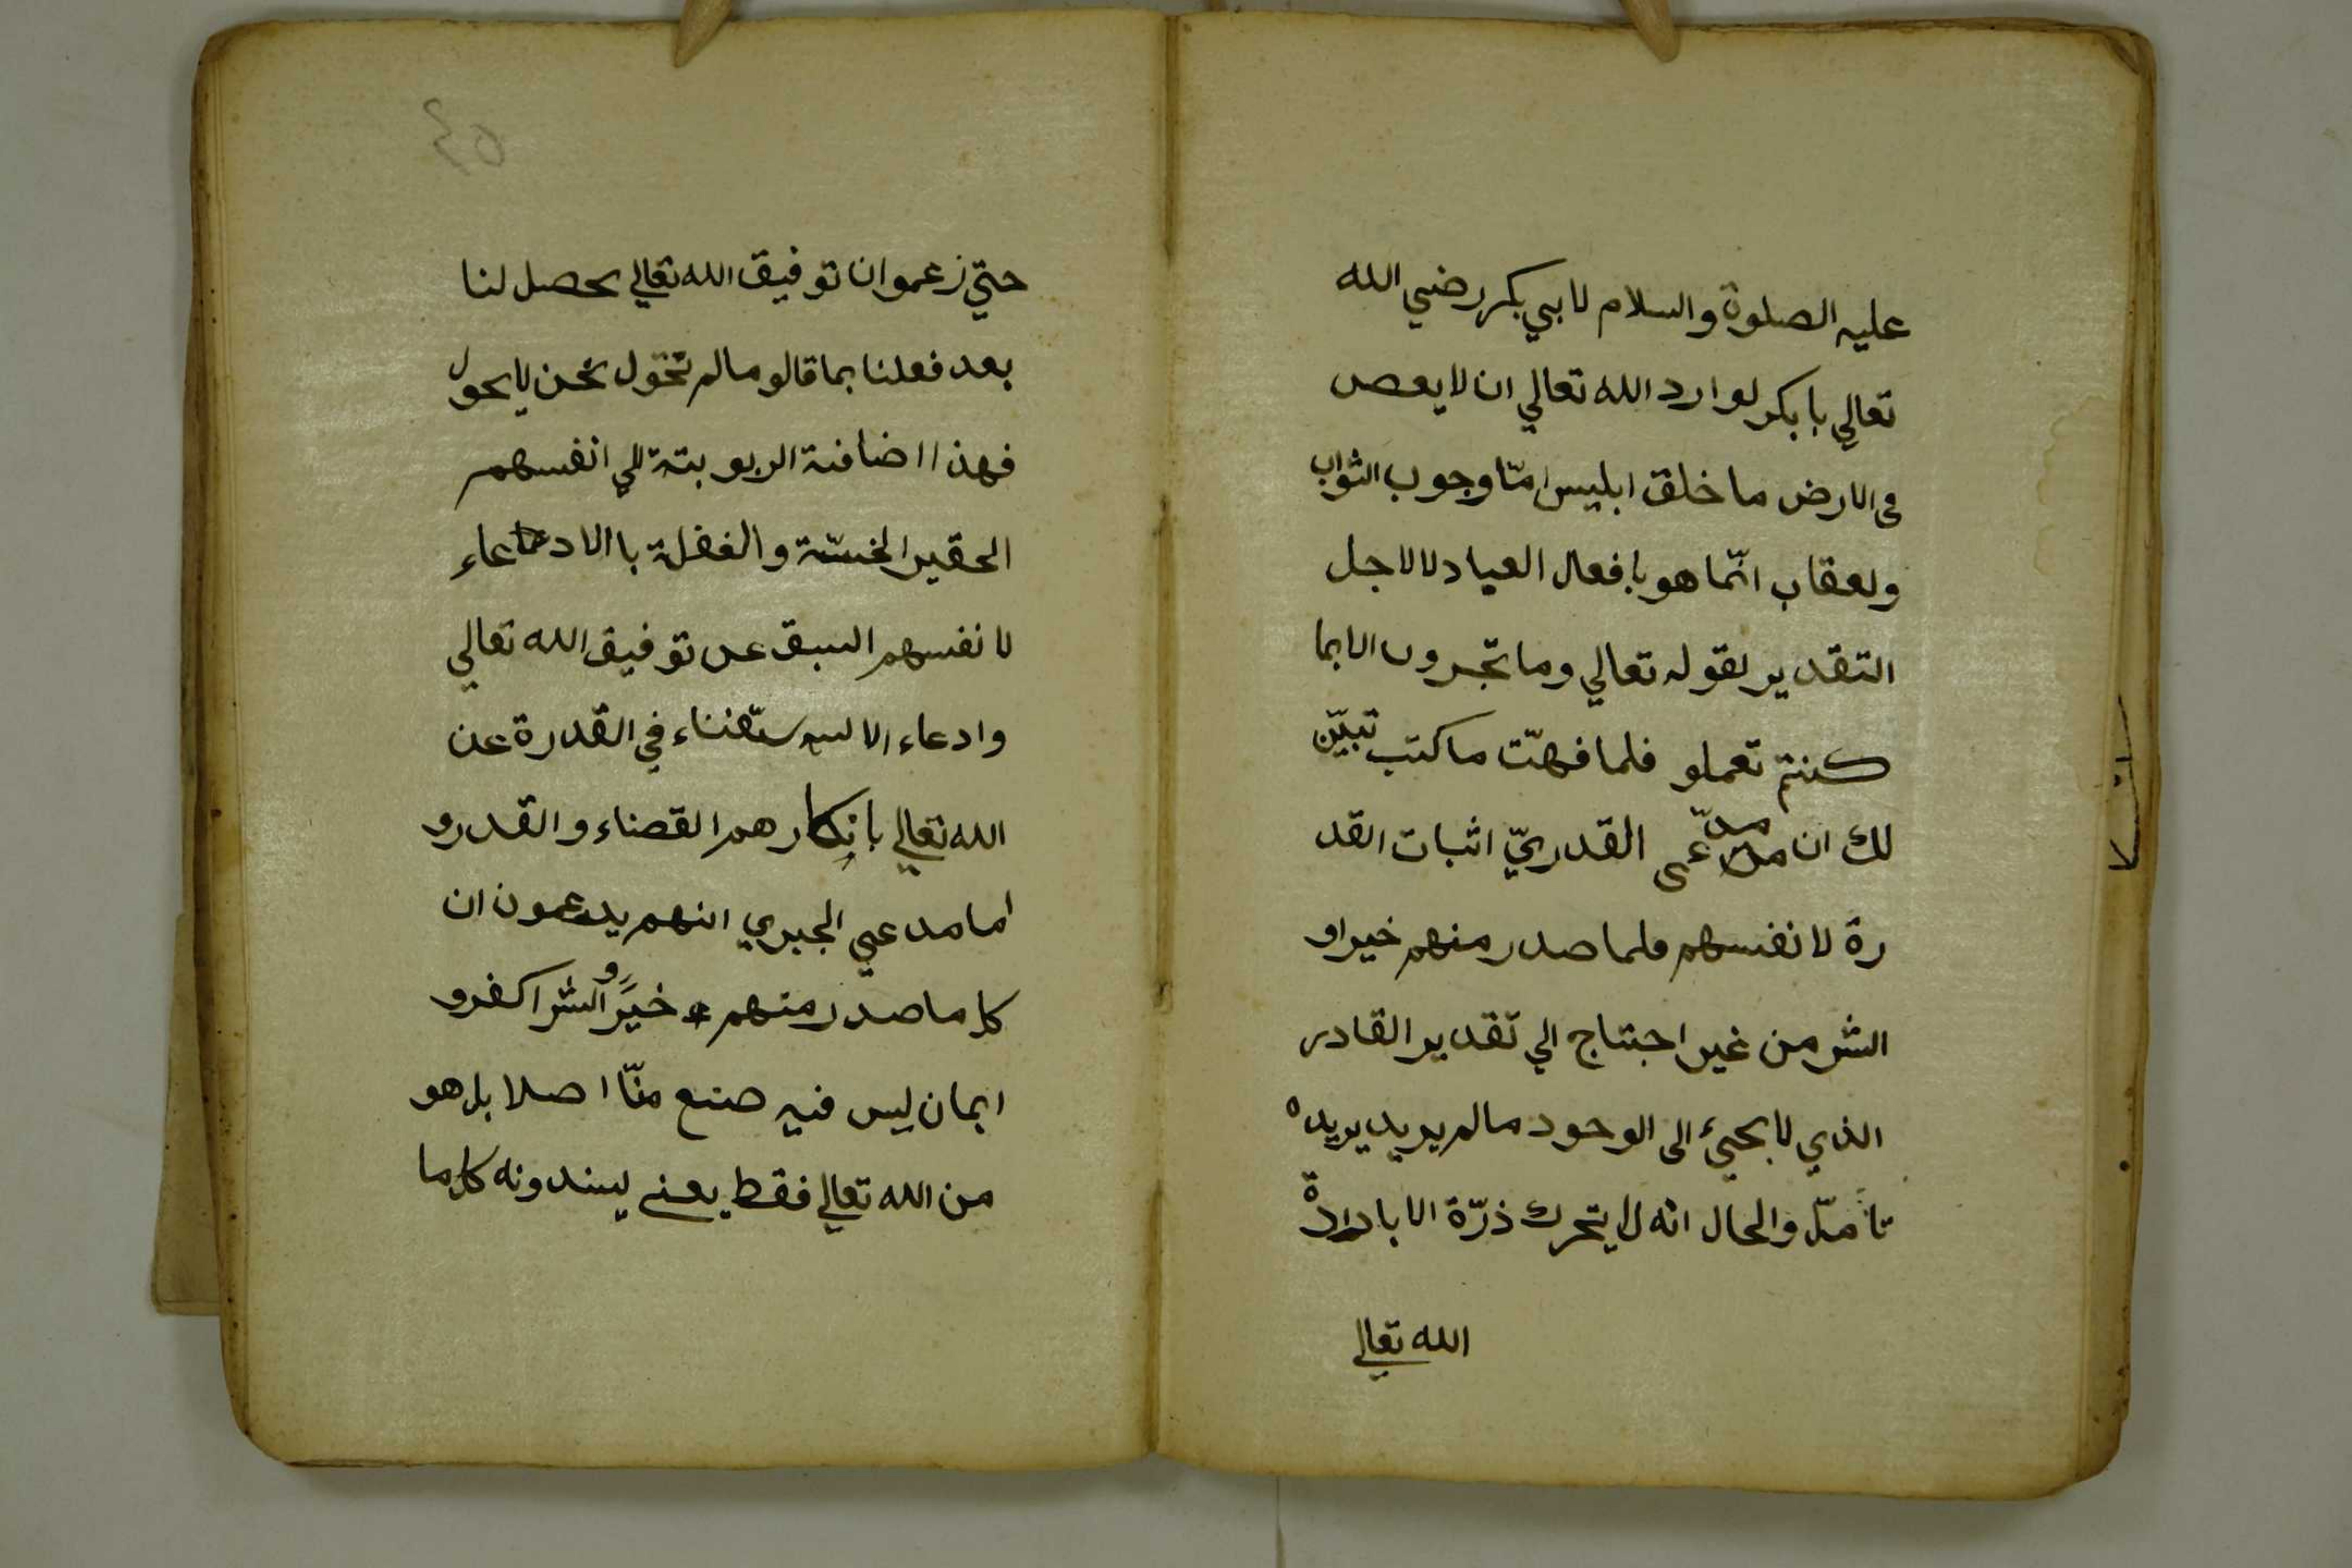 عليه الصلوة والسلام لابي بكر رضي الله
تعالي بابكر لوارد الله تعالي ان لا يعص
فى الارض ما خلق ابليس امّا وجوب الثواب
ولعقاب انّما هو بافعال العباد لا لاجل
التقدير لقوله تعالي وما تجرون الا بما
كنتم تعملو فلما فهمّت ما كتب تبيّن
لك ان مدّعى القدريّ اثبات القد
رة لا نفسهم فلما صدر منهم خيراو
الشر من غير احتتاج الي تقدير القادر
الذي لا يحيئ الى الوجود مالم يريد يريده
تأمّل والحال انه لا يتحرك ذرّة الا بارادة
الله تعالي
حتي زعموا ان توفيق الله تعالي يحصل لنا
بعد فعلنا بما قالو مالم تحوّل نحن لا يحول
فهذا اضافة الربوبتة الي انفسهم
الحقير الخسّة والغفلة با الادعاء
لا نفسهم السبق عن توفيق الله تعالي
وادعاء الا ستغناء في القدرة عن
الله تعالي بانكارهم القضاء والقدرو
اما مدعي الجبري انهم يدعمون ان
كل ما صدر منهم خيرًا والشر اكفرو
ايمان ليس فيه صنع منّا اصلا بل هو
من الله تعالي فقط يعني ليسندونه كل ما